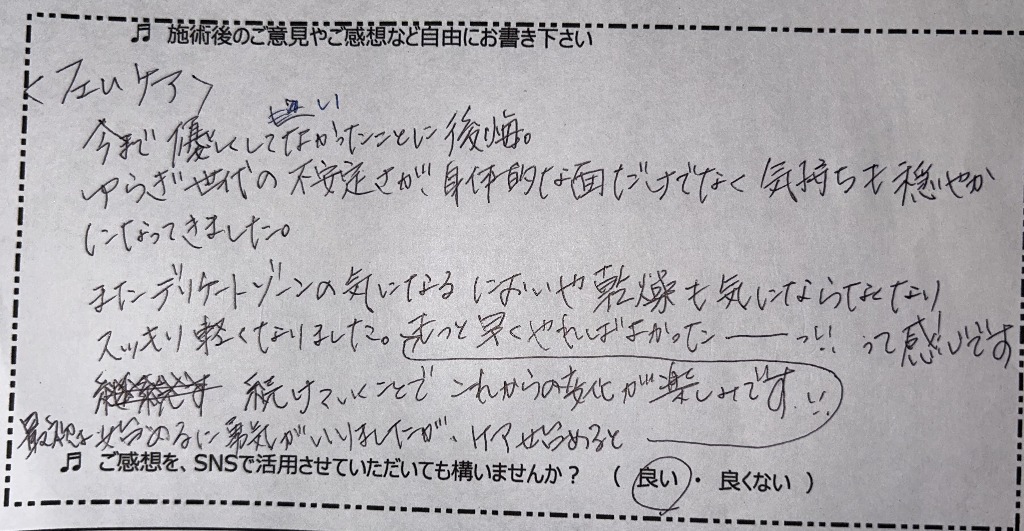 ♬ 施術後のご意見やご感想など自由にお書き下さい
<フェムケア>
い
今まで優しくしてなかったことに後悔。
ゆらぎ世代の不安定さが、身体的な面だけでなく気持ちも穏やか
になってきました。
またデリケートゾーンの気になるにおいや乾燥も気にならなくなり
スッキリ軽くなりました。もっと早くやればよかったーーっ!! って感じです
続けていくことでこれからの変化が楽しみです!!
最初は始めるに勇気がいりましたが、ケア始めると
♬ ご感想を、SNSで活用させていただいても構いませんか? ( 良い ・ 良くない )